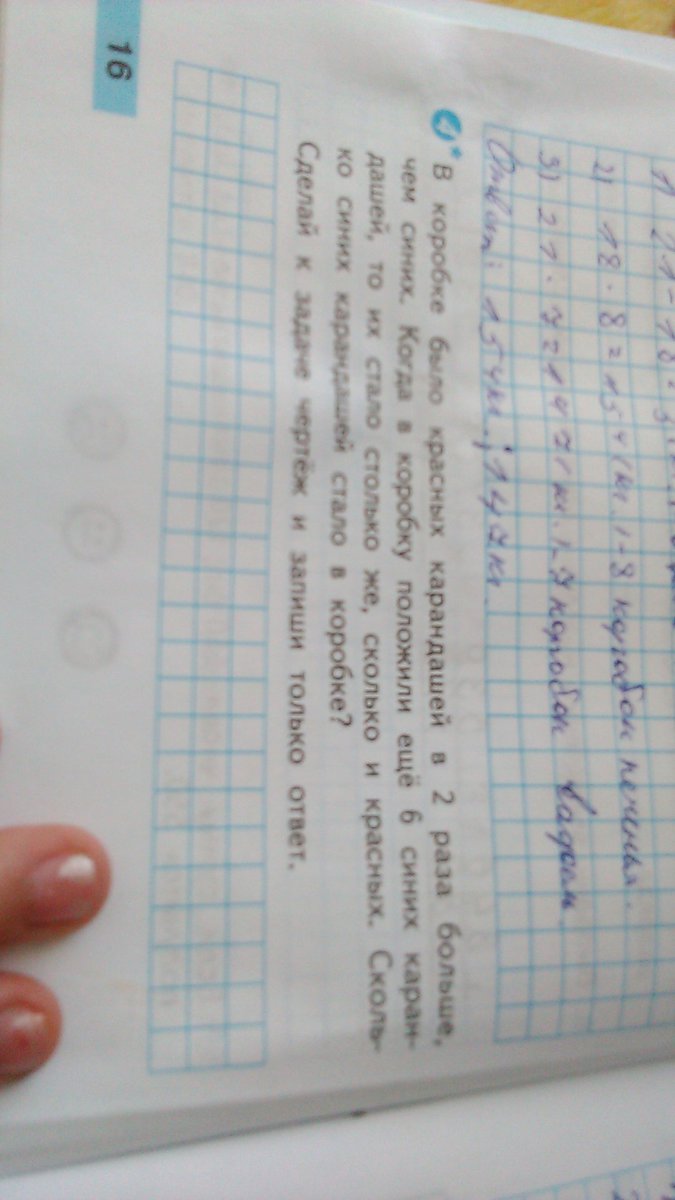 2) 18 · 8 = 154 (кг.) - 8 коробок печенья.
3) 21 · 7 = 147 (кг.) - 7 коробок
Ответ: 154 кг.; 147 кг.
4* В коробке было красных карандашей в 2 раза больше,
чем синих. Когда в коробку положили ещё 6 синих каран-
дашей, то их стало столько же, сколько и красных. Сколь-
ко синих карандашей стало в коробке?
Сделай к задаче чертёж и запиши только ответ.
16